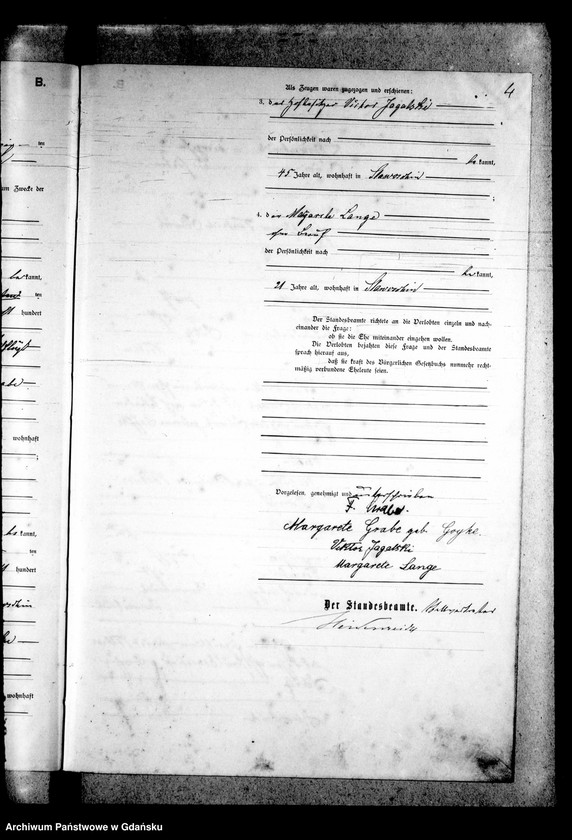 B.
4
Als Zeugen waren zugezogen und erschienen:
3. der Hofbesitzer Viktor Jagalski
der Persönlichkeit nach
be kannt,
45 Jahre alt, wohnhaft in
;
4. die Margarete Lange
der Persönlichkeit nach
be kannt,
21 Jahre alt, wohnhaft in
Der Standesbeamte richtete an die Verlobten einzeln und nach-
einander die Frage:
ob sie die Ehe miteinander eingehen wollen.
Die Verlobten bejahten diese Frage und der Standesbeamte
sprach hierauf aus,
daß sie kraft des Bürgerlichen Gesetzbuchs nunmehr recht-
mäßig verbundene Eheleute seien.
Vorgelesen, genehmigt und unterschrieben
F. Grabe.
Margarete Grabe geb. Goyke.
Viktor Jagalski
Margarete Lange
Der Standesbeamte.
ten
um Zwecke der
be kannt,
ten
hundert
wohnhaft
;
be kannt,
ten
hundert
wohnhaft
Archiwum Państwowe w Gdańsku